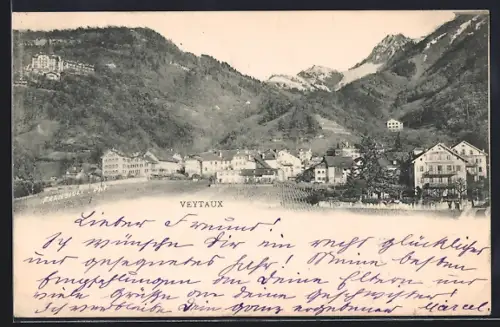 VEYTAUX
Lieber Freund!
Ich wünsche Dir ein recht glückliches
und gesegnetes Jahr! Meine besten
Empfehlungen an Deine Eltern und
viele Grüße an deine Geschwister!
Ich verbleibe Dein ganz ergebener Marcel.